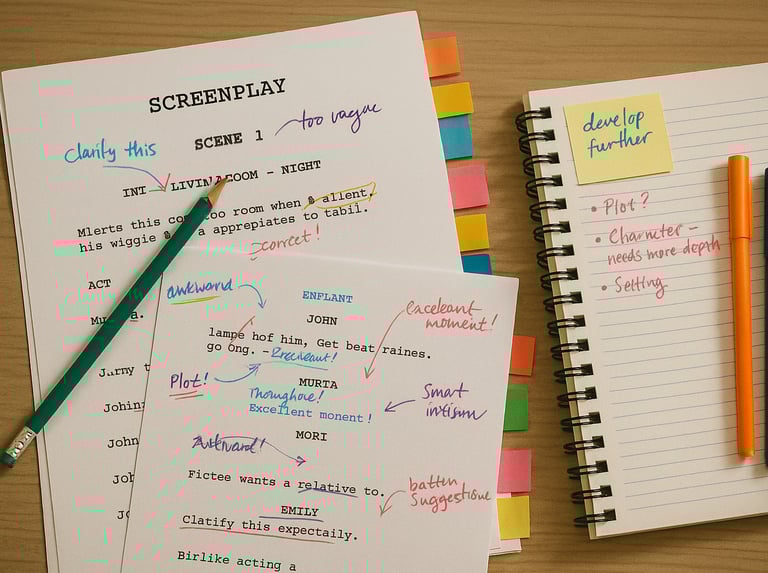 SCREENPLAY
SCENE 1
too vague
Clarify this
INT LIVINAROOM – NIGHT
Mlerts this co too room when & allent.
his wiggie & a apprepiates to tabil.
correct!
ACT
Mu a.
Jurny t
Johin
John
Joh
Jo
awkward
ENFLANT
JOHN
eaceleant
moment!
lampe hof him, Get beat raines.
go ong. –
Plot!
MURTA
Thoroughove!
Excellent monent!
Smart
intisum
MORI
Awkward!
Fictee wants a relative to.
batten
Suggestione
EMILY
Clatify this expectaily.
Birlike acting a
develop
further
• Plot?
• Character –
needs more depth
• Setting